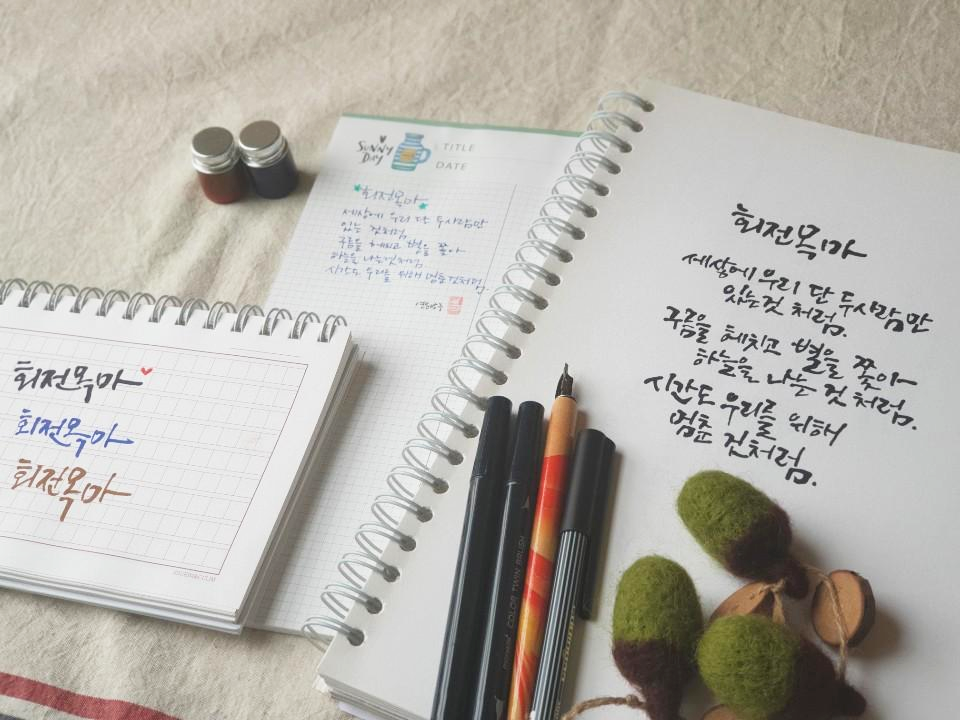 회전목마
회전목마
회전목마
SUNNY DAY
TITLE
DATE
회전목마
세상에 우리 단 두사람만
있는 것처럼.
구름을 헤치고 별을 쫓아
하늘을 나는것처럼.
시간도 우리를 위해 멈춘것처럼.
회전목마
세상에 우리 단 두사람만
있는것 처럼.
구름을 헤치고 별을 쫓아
하늘을 나는 것 처럼.
시간도 우리를 위해
멈춘 것처럼.
COLOR TWIN BRUSH